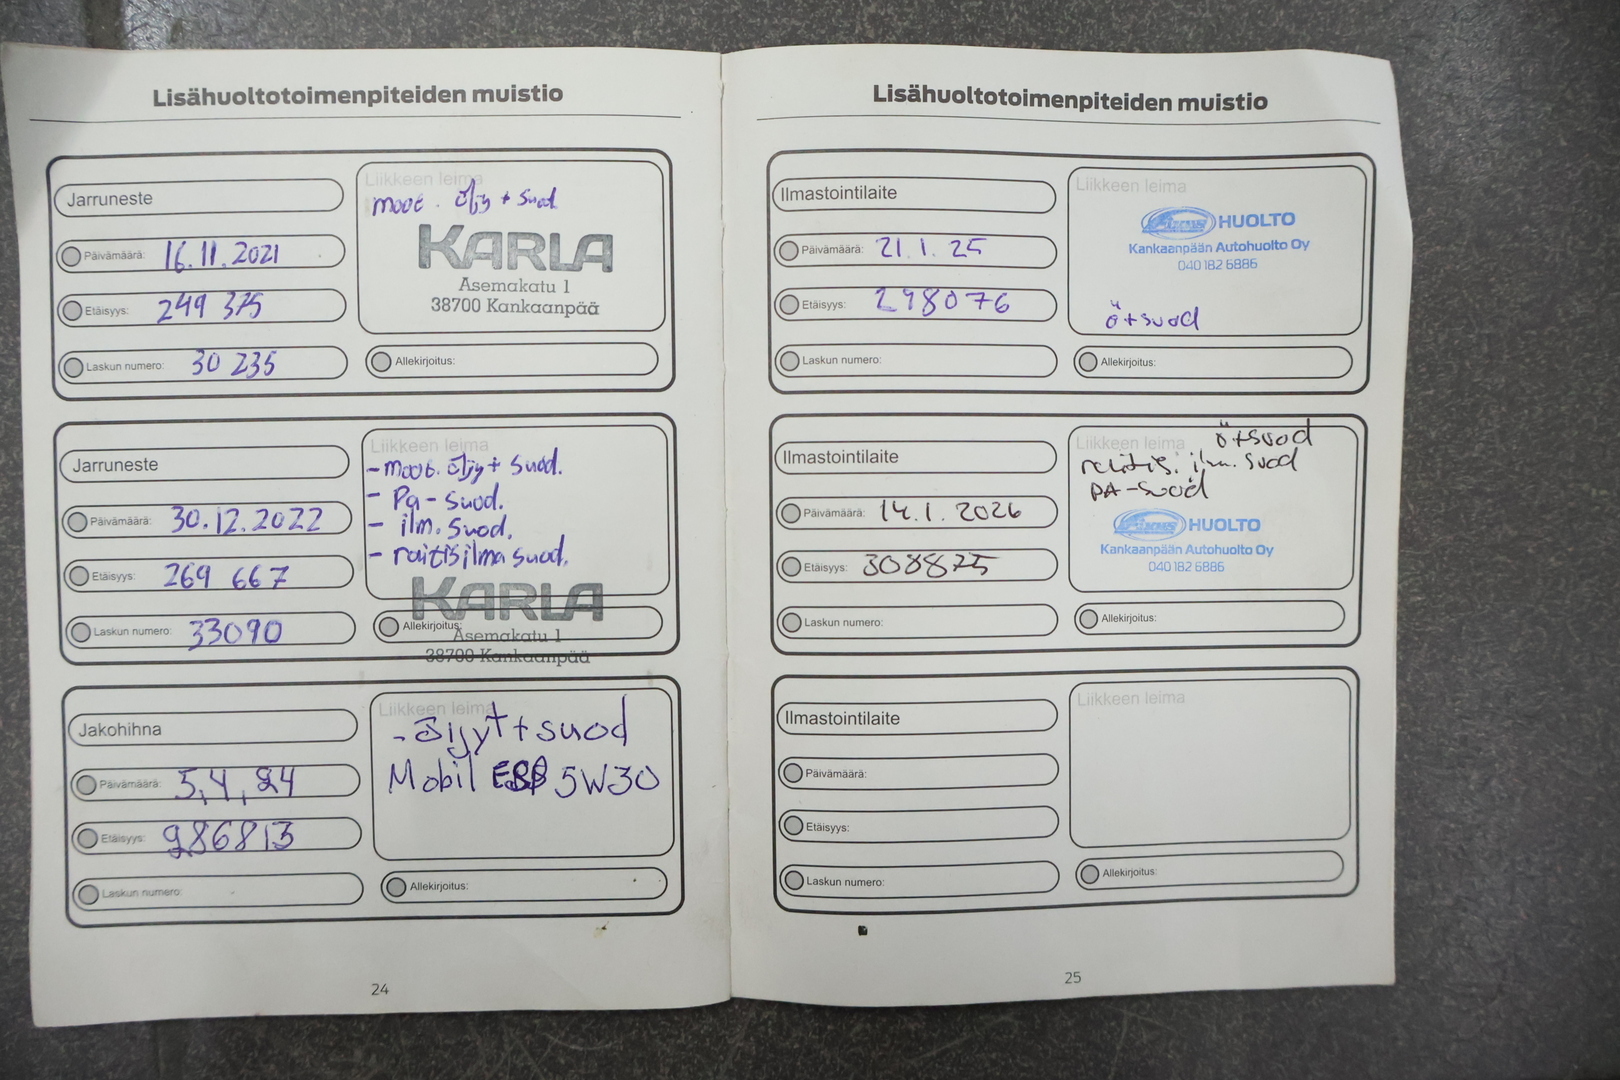 Lisähuoltotoimenpiteiden muistio
Jarruneste
Päivämäärä: 16.11.2021
Etäisyys: 249 375
Laskun numero: 30 235
Liikkeen leima
moot. öljy + suod.
KARLA
Asemakatu 1
38700 Kankaanpää
Allekirjoitus:
Jarruneste
Päivämäärä: 30.12.2022
Etäisyys: 269 667
Laskun numero: 33090
Liikkeen leima
- moot. öljy + suod.
- Pa-suod.
- ilm. suod.
- raitisilma suod.
KARLA
Allekirjoitus:
Asemakatu 1
38700 Kankaanpää
Jakohihna
Päivämäärä: 5,4,24
Etäisyys: 286813
Laskun numero:
Liikkeen leima
- öljyt + suod
Mobil 5W30
Allekirjoitus:
24
Lisähuoltotoimenpiteiden muistio
Ilmastointilaite
Päivämäärä: 21.1.25
Etäisyys: 298076
Laskun numero:
Liikkeen leima
HUOLTO
Kankaanpään Autohuolto Oy
040 182 6886
ö+suod
Allekirjoitus:
Ilmastointilaite
Päivämäärä: 14.1.2026
Etäisyys: 308825
Laskun numero:
Liikkeen leima
ö+suod
raitis. ilm. suod
PA-suod
HUOLTO
Kankaanpään Autohuolto Oy
040 182 6886
Allekirjoitus:
Ilmastointilaite
Päivämäärä:
Etäisyys:
Laskun numero:
Liikkeen leima
Allekirjoitus:
25